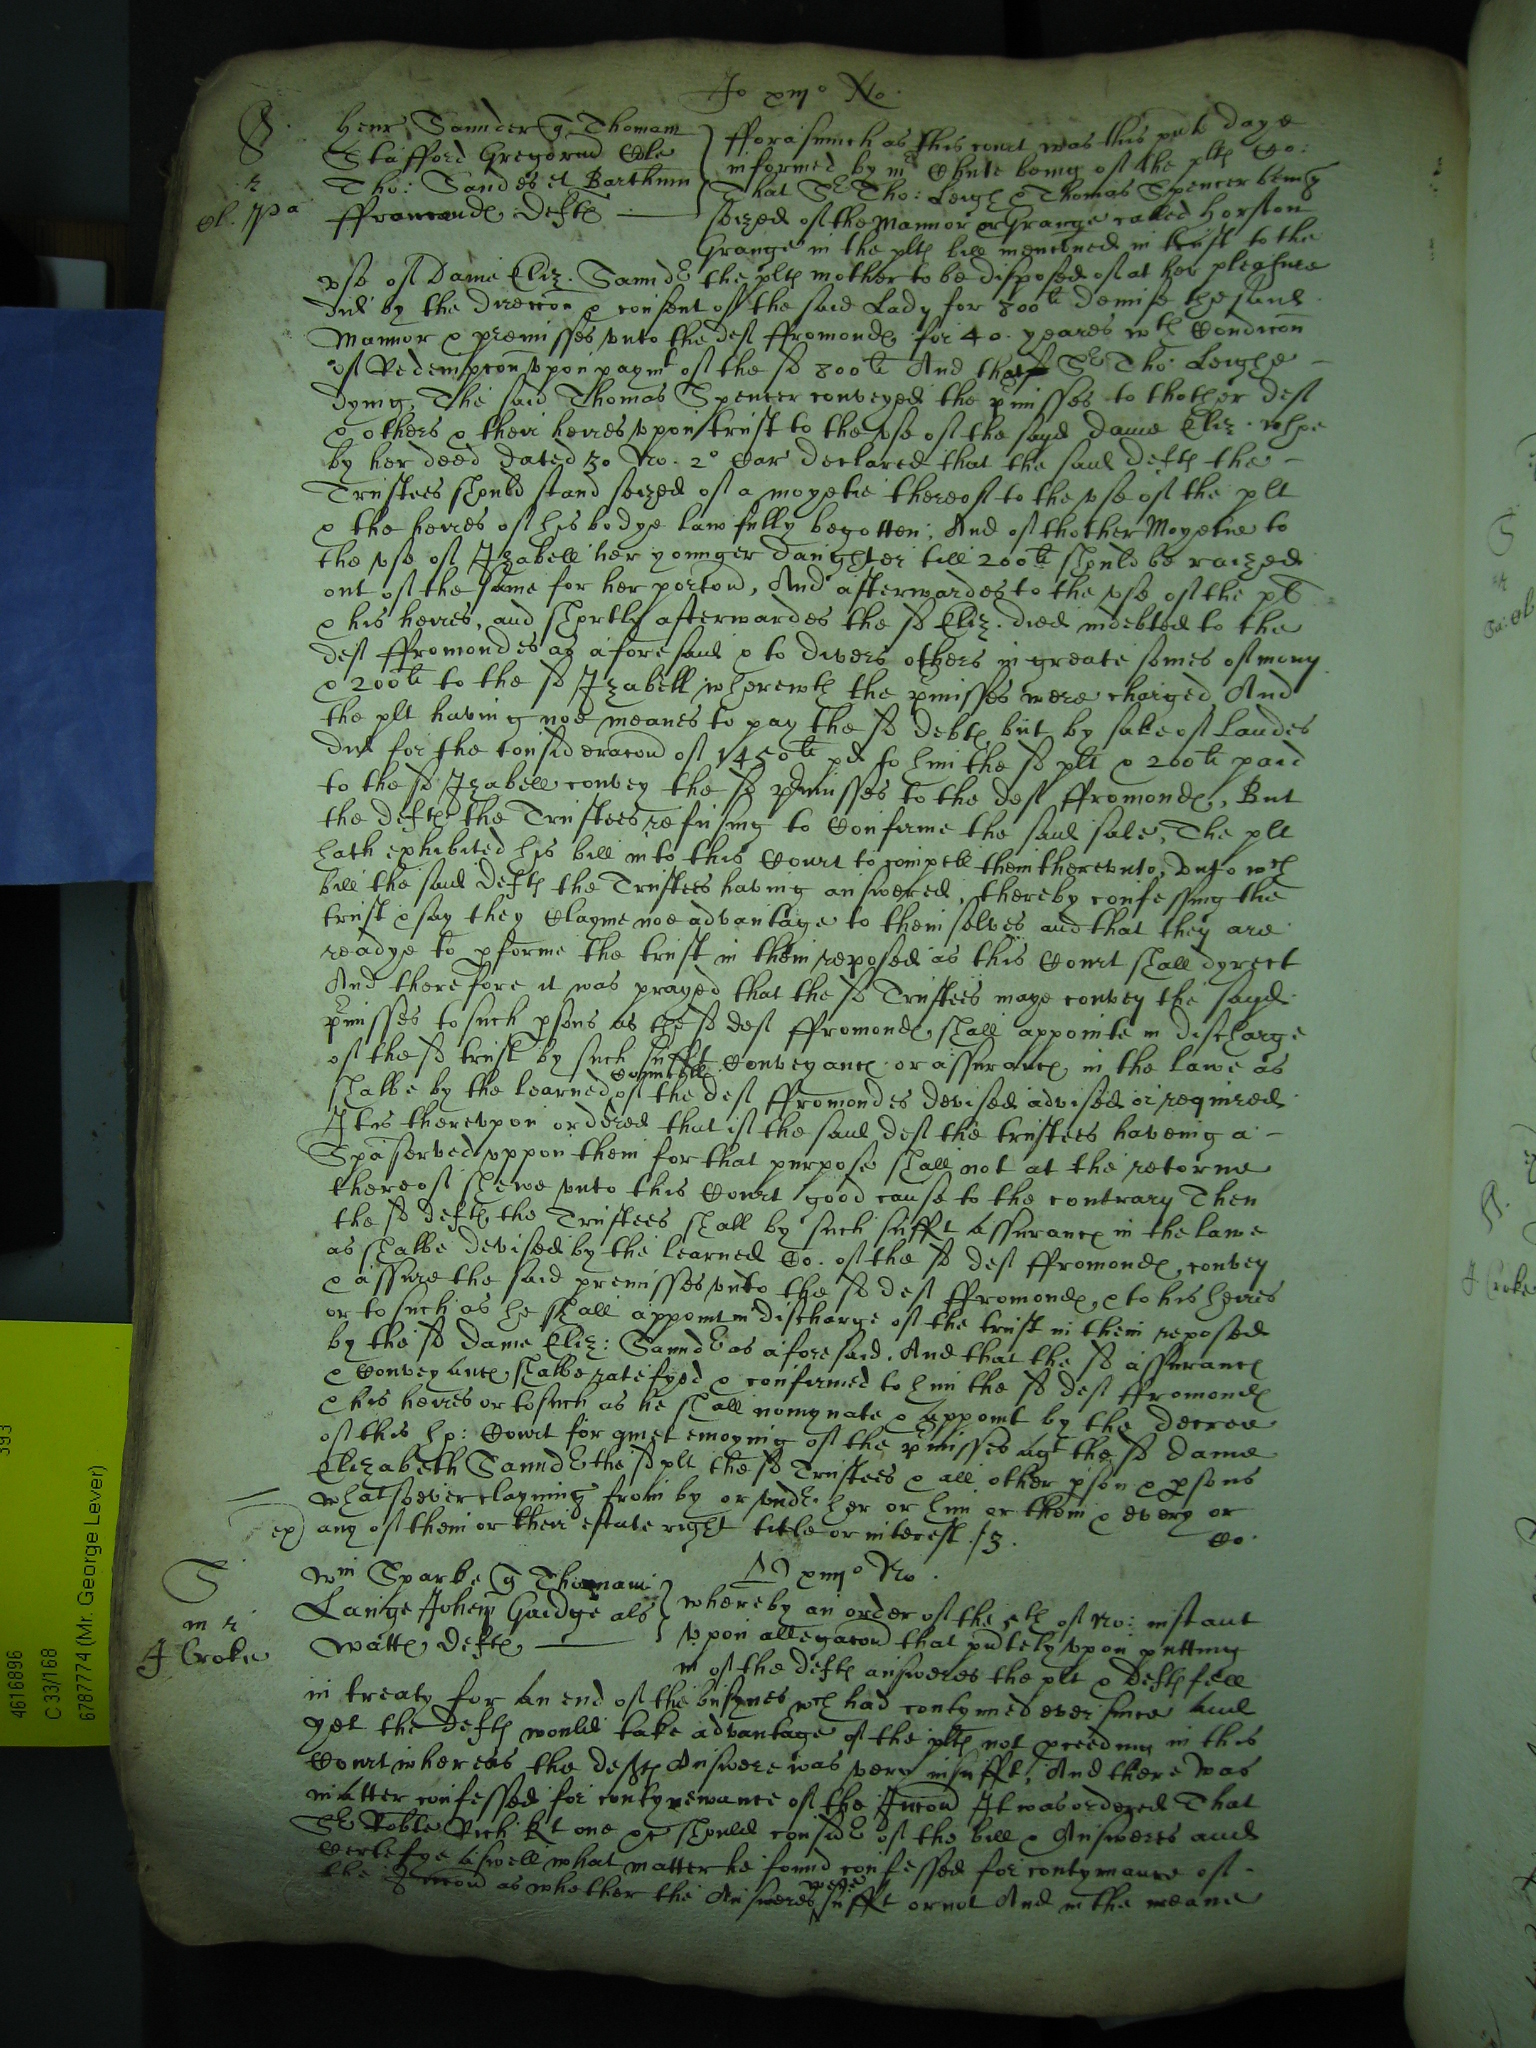 Jo xiijo No.
S.
r
Henr Saunder q Thomam
Stafford Gregorium Cole
Tho: Sandes et Barthum
ffromond Deftes
fforasmuch as this court was this pnte daye
informed by mr Chute being of the pltes Co:
That Sr Tho: Leigh & Thomas Spencer being
seized of the Mannor or Grange called Horston
Grange in the pltes bill menconed in trust to the
vse of Dame Eliz. Saundr the pltes mother to be disposed of at her pleasure
did by the direccon & consent of the said Lady for 800li demise the said
Mannor & premisses vnto the deft ffromondes for 40. yeares wth Condicon
of Redempcon vpon paymt of the sd 800li And that Sr Tho: Leighe
dying, The said Thomas Spencer conveyed the pmisses to thother deft
& others & their heires vpon trust to the vse of the sayd Dame Eliz. whoe
by her deed dated 30 No. 2o Car declared that the said deftes the
Trustees should stand seized of a moyetie thereof to the vse of the plt
& the heires of his bodye lawfully begotten, And of thother Moyetie to
the vse of Izabell her younger daughter till 200li should be raized
out of the same for her porcon, And afterwardes to the vse of the plt
& his heires, and shortly afterwardes the sd Eliz. died indebted to the
deft ffromondes as aforesaid & to divers others in greate somes of mony
& 200li to the sd Izabell wherewth the pmisses were charged And
the plt having noe meanes to pay the sd debtes but by sale of Landes
did for the consideracon of 1450li pd to him the sd plt & 200li paid
to the sd Izabell convey the sd pmisses to the deft ffromondes, But
the deftes the Trustees refusing to Confirme the said sale, The plt
hath exhibited his bill into this Court to compell them therevnto, vnto wch
bill the said deftes the Trustees having answered, thereby confessing the
trust & say they Clayme noe advantage to themselves and that they are
readye to pforme the trust in them reposed as this Court shall dyrect
And therefore it was prayed that the sd Trustees maye convey the sayd
pmisses to such psons as the sd deft ffromondes shall appointe in discharge
of the sd trust by such sufft Conveyance or assurance in the lawe as
Councell
shalbe by the learned of the deft ffromondes devised advised or required
It is therevpon ordered that if the said deft the trustees haveing a
Spa served vppon them for that purpose shall not at the retorne
thereof shewe vnto this Court good cause to the contrary Then
the sd deftes the Trustees shall by such sufft assurance in the lawe
as shalbe devised by the learned Co. of the sd deft ffromondes, convey
& assure the said premisses vnto the sd deft ffromondes, & to his heires
or to such as he shall appoint in discharge of the trust in them reposed
by the sd Dame Eliz: Saundr as aforesaid. And that the sd assurance
& Conveyance shalbe ratefyed & confirmed to him the sd deft ffromondes
& his heires or to such as he shall nomynate & appoint by the decree
of this ho: Court for quiet enioying of the pmisses agt the sd Dame
Elizabeth Saundr the sd plt the sd Trustees & all other pson & psons
whatsoever clayming from by or vndr her or him or them & every or
ex) any of them or their estate right title or interest. /3.
Co.
S
m r
J Croke
Wm Sparke q Thomam
Lange Johem Gardge als
Watte, Deftes
xiiijo No.
whereby an order of the 5th of No: instant
vpon allegacon that pntely vpon putting
in of the deftes answeres the plt & Deftes fell
in treaty for an end of the busynes wch had contynued ever since and
yet the Deftes would take advantage of the pltes not pceeding in this
Court whereas the deftes Answere was very insufft, And there was
matter confessed for contynewance of the Iniuncon It was ordered That
Sr Robte Rich kt one &c should considr of the bill & Answeres and
Certefye aswell what matter he found confessed for contynuance of
were
the Iniuncon as whether the Answeres sufft or not And in the meane
4616896
C 33/168
6787774 (Mr. George Lever)
393